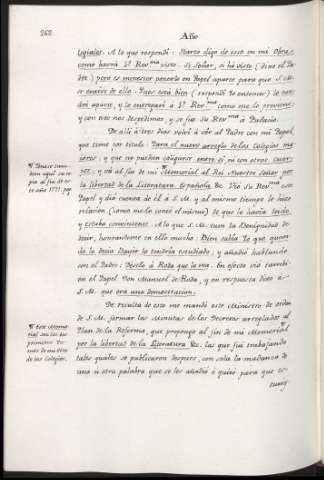 262
Año
legiales. A lo que respondi. Harto digo de esto en mi Obra,
como havrá V. Rev.ma visto. Si Señor, si hé visto (dixo el Pa-
dre) pero es menester ponerlo en Papel aparte para que S. M.
se entere de ello. Pues està bien (respondi yo entonces) lo pon-
dré aparte, y lo entregaré à V. Rev.ma como me lo previene
y con esto nos despedimos, y se fue Su Rev.ma à Palacio.
De alli à tres dias volvi à vér al Padre con mi Papel,
que tiene por titulo: Para el nuevo arreglo de los Colegios ma-
yores, y que no puedan coligarse entre sí, ni con otros Cuer-
pos, y vá al fin de mi Memorial al Rei Nuestro Señor por
la libertad de la Literatura Española &c. Vio Su Rev.ma este
Papel y dió cuenta de él à S. M. y al mismo tiempo le hizo
relacion (como me lo contó el mismo) de que lo havia leido,
y estaba convincente. A lo que S. M. tuvo la Benignidad de
decir, honrandome en ello mucho: Bien sabia Yo que quan-
do lo decia Bayer lo tendria estudiado; y añadió hablando
con el Padre: Dáselo à Roda que lo vea. En efecto vió tambi-
en el Papel Don Manuel de Roda, y en respuesta dixo à
S. M. que era una demonstracion.
De resulta de esto me mandó este Ministro de orden
de S. M. formar las Minutas de los Decretos arreglados al
Plan de la Reforma, que propongo al fin de mi Memorial
por la libertad de la Literatura &c. las que fui trabajando
tales quales se publicaron despues, con sola la mudanza de
una ù otra palabra que se les añadió ò quitó para que es-
tuvie-
¶ Tengo tam-
bien aqui co-
pia al fin de es-
te año 1771. pag.
¶ Este Memo-
rial son los dos
primeros To-
mos de mi Obra
de los Colegios.